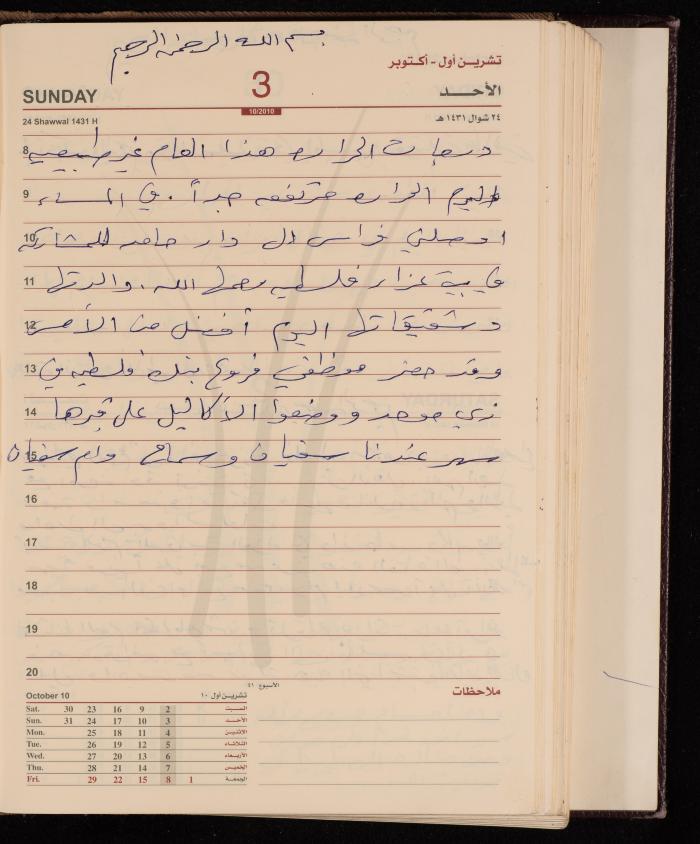 بسم الله الرحمن الرحيم
تشرين أول - أكتوبر
SUNDAY
3
الأحد
10/2010
24 Shawwal 1431 H
٢٤ شوال ١٤٣١ هـ
8 درجات الحراره هذا العام غير طبيعيه
9 اليوم الحراره مرتفعه جداً . في المساء
10 اوصلني فراس الى دار حامد للمشاركه
11 في بيت عزاء فلسطين رحمها الله . والدتها
12 وشقيقاتها اليوم أفضل من الأمس
13 وقد حضر موظفي فروع بنك فلسطين في
14 زي موحد ووضعوا الأكاليل على قبرها
15 سهر عندنا سفيان وسماح وام سفيان
16
17
18
19
20
ملاحظات
الأسبوع ٤١
October 10 تشرين أول ١٠
Sat. 30 23 16 9 2 السبت
Sun. 31 24 17 10 3 الأحد
Mon. 25 18 11 4 الاثنين
Tue. 26 19 12 5 الثلاثاء
Wed. 27 20 13 6 الأربعاء
Thu. 28 21 14 7 الخميس
Fri. 29 22 15 8 1 الجمعة